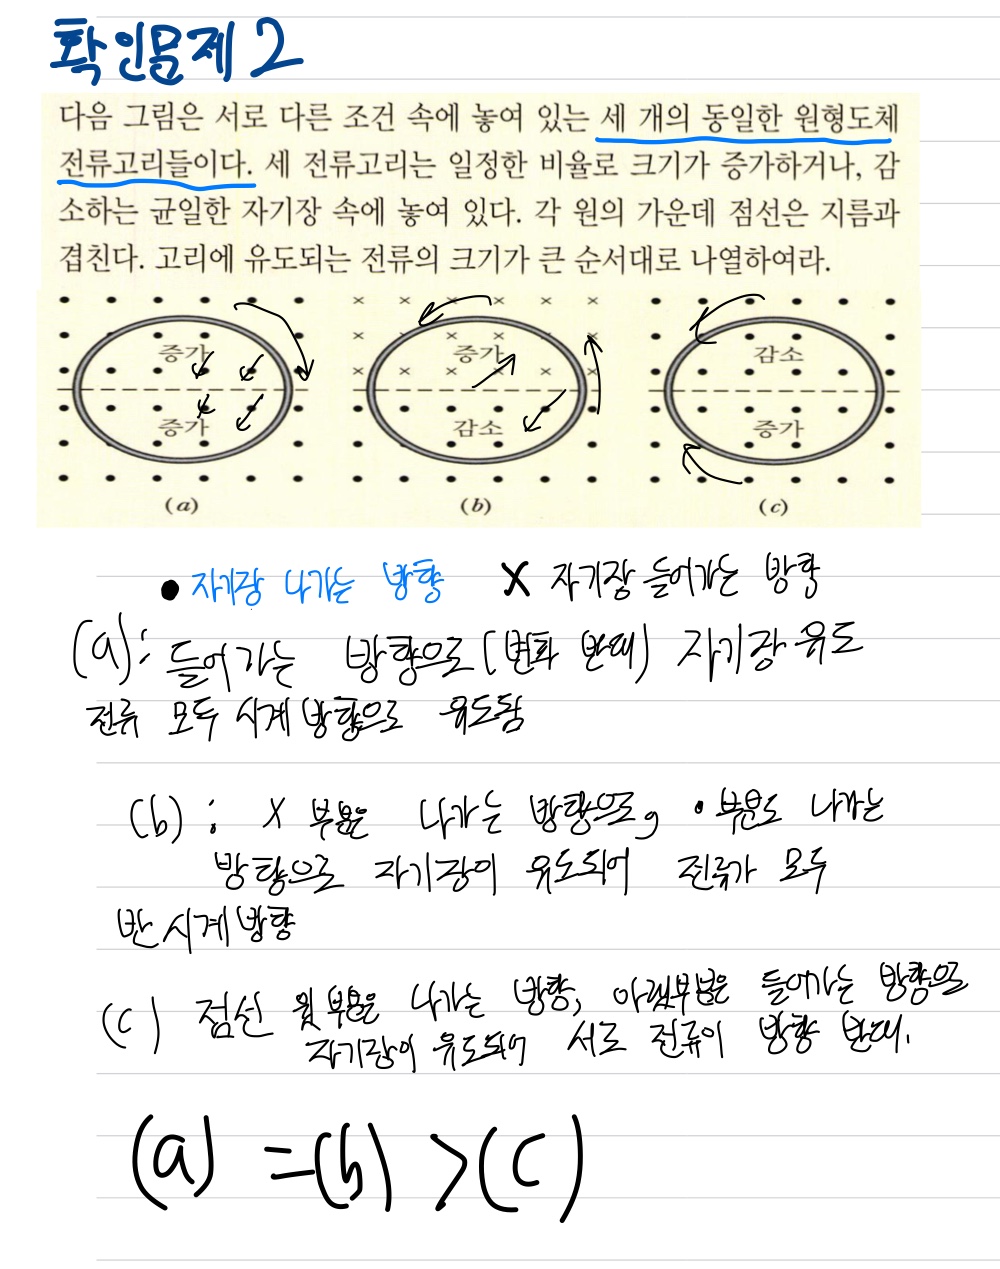 확인문제 2
다음 그림은 서로 다른 조건 속에 놓여 있는 세 개의 동일한 원형도체
전류고리들이다. 세 전류고리는 일정한 비율로 크기가 증가하거나, 감
소하는 균일한 자기장 속에 놓여 있다. 각 원의 가운데 점선은 지름과
겹친다. 고리에 유도되는 전류의 크기가 큰 순서대로 나열하여라.
증가 증가 감소
증가 감소 증가
(a) (b) (c)
● 자기장 나가는 방향 X 자기장 들어가는 방향
(a): 들어가는 방향으로 (변화 반대) 자기장 유도
전류 모두 시계 방향으로 유도됨
(b) : X 부분은 나가는 방향으로, • 부분도 나가는
방향으로 자기장이 유도되어 전류가 모두
반시계 방향
(c) 점선 윗 부분은 나가는 방향, 아랫부분은 들어가는 방향으로
자기장이 유도되어 서로 전류이 방향 반대.
(a) = (b) > (c)